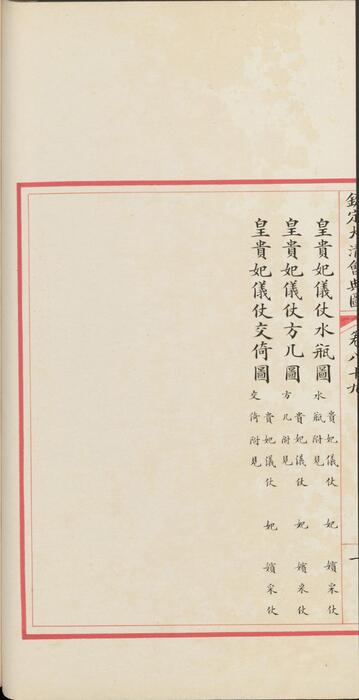 欽定大清會典圖 卷八十九 一
皇貴妃儀仗水瓶圖 貴妃儀仗 妃 嬪采仗
水瓶附見
皇貴妃儀仗方几圖 貴妃儀仗 妃 嬪采仗
方几附見
皇貴妃儀仗交倚圖 貴妃儀仗 妃 嬪采仗
交倚附見